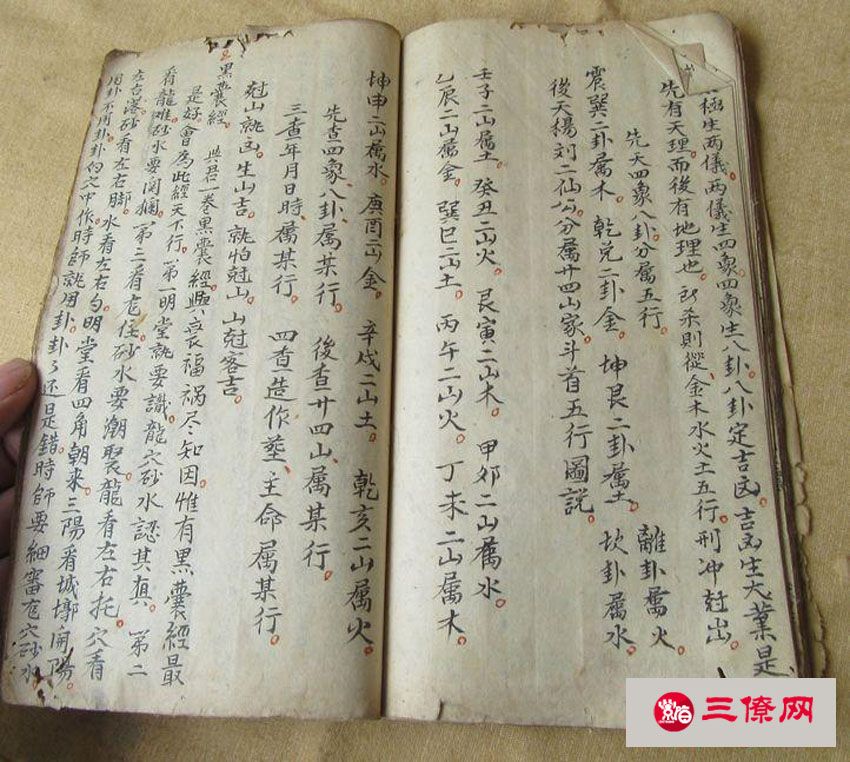 極生两儀。两儀生四象。四象生八卦。八卦定吉凶。吉凶生大業是
先有天理。而後有地理也。形杀則從金木水火土五行。刑冲尅出。
先天四象八卦分属五行。
震巽二卦属木。乾兑二卦金。坤艮二卦属土。離卦属火。坎卦属水
後天楊刘二仙公。分属廿四山家。斗首五行圖説。
壬子二山属土。癸丑二山火。艮寅二山木。甲夘二山属水。
乙辰二山属金。巽巳二山土。丙午二山火。丁未二山属木。
坤申二山属水。庚酉二山金。辛戍二山土。乾亥二山属火。
先查四象、八卦、属某行。後查廿四山、属某行。
三查年月日時、属某行。四查造作塟、主命属某行。
尅山就凶。生山吉。就怕尅山。山尅客吉。
黑囊經。
與君一卷黑囊經。興衰福祸尽知因。惟有黑囊經最
是好。會為此經天下行。第一明堂就要識。龍穴砂水認其真。第二
看龍难砂水要闗攔。第三看穴住。砂水要潮聚。龍看左右托。穴看
左右落。砂看左右脚。水看左右勾。明堂看四角朝来。三陽看城墎開陽。
用卦不用卦。卦向文中作。時師就用卦。卦々还是錯。時師要細審穴砂水
三僚网